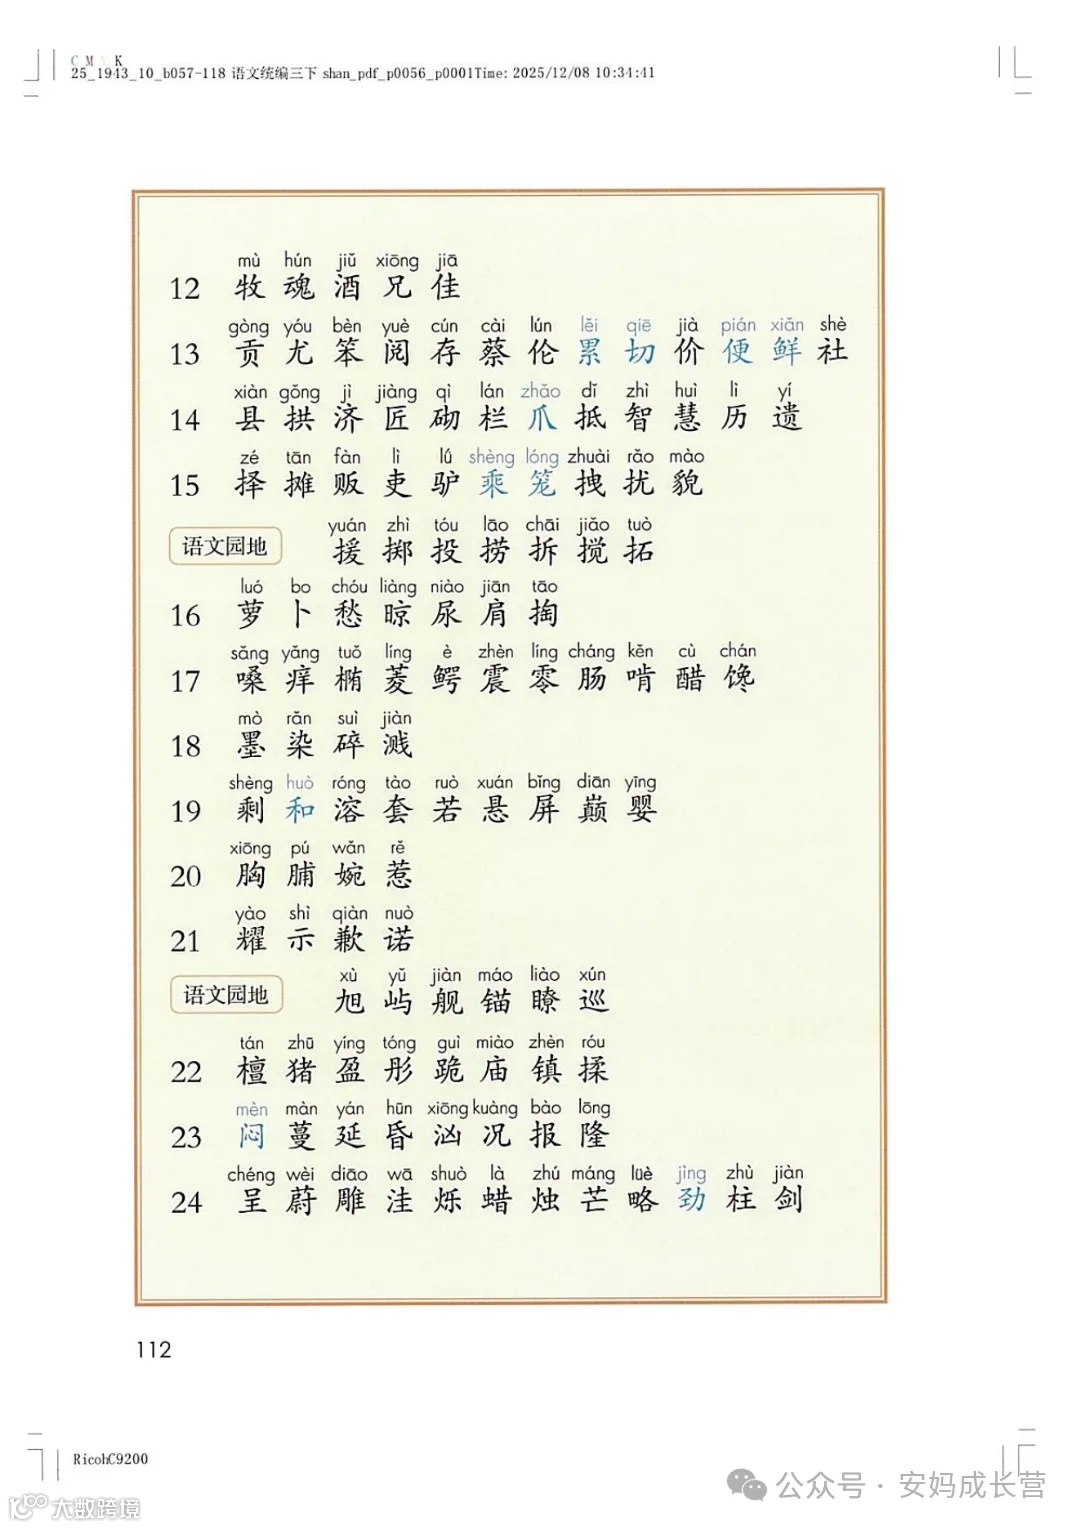 C M Y K
25_1943_10_b057-118 语文统编三下 shan_pdf_p0056_p0001Time: 2025/12/08 10:34:41
mù hún jiǔ xiōng jiā
12 牧 魂 酒 兄 佳
gòng yóu bèn yuè cún cài lún lěi qiē jià pián xiǎn shè
13 贡 尤 笨 阅 存 蔡 伦 累 切 价 便 鲜 社
xiàn gǒng jì jiàng qì lán zhǎo dǐ zhì huì lì yí
14 县 拱 济 匠 砌 栏 爪 抵 智 慧 历 遗
zé tān fàn lì lǘ shèng lóng zhuài rǎo mào
15 择 摊 贩 吏 驴 乘 笼 拽 扰 貌
yuán zhì tóu lāo chāi jiǎo tuò
语文园地 援 掷 投 捞 拆 搅 拓
luó bo chóu liàng niào jiān tāo
16 萝 卜 愁 晾 尿 肩 掏
sǎng yǎng tuǒ líng è zhèn líng cháng kěn cù chán
17 嗓 痒 椭 菱 鳄 震 零 肠 啃 醋 馋
mò rǎn suì jiàn
18 墨 染 碎 溅
shèng huò róng tào ruò xuán bǐng diān yīng
19 剩 和 溶 套 若 悬 屏 巅 婴
xiōng pú wǎn rě
20 胸 脯 婉 惹
yào shì qiàn nuò
21 耀 示 歉 诺
xù yǔ jiàn máo liào xún
语文园地 旭 屿 舰 锚 瞭 巡
tán zhū yíng tóng guì miào zhèn róu
22 檀 猪 盈 彤 跪 庙 镇 揉
mèn màn yán hūn xiōng kuàng bào lōng
23 闷 蔓 延 昏 汹 况 报 隆
chéng wèi diāo wā shuò là zhú máng lüè jìng zhù jiàn
24 呈 蔚 雕 洼 烁 蜡 烛 芒 略 劲 柱 剑
112
RicohC9200
公众号 · 安妈成长营
大数跨境